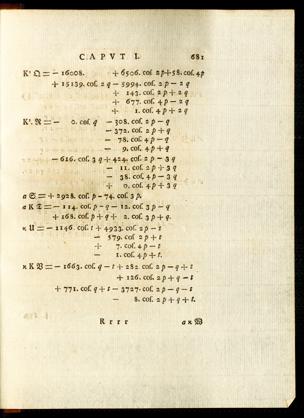 CAPUT I. 681
K² 𝔔 = − 16008. + 6506. coſ. 2 p + 58. coſ. 4 p
+ 15139. coſ. 2 q − 5994. coſ. 2 p − 2 q
+ 143. coſ. 2 p + 2 q
+ 677. coſ. 4 p − 2 q
+ 1. coſ. 4 p + 2 q
K². ℜ = − 0. coſ. q − 308. coſ. 2 p − q
− 372. coſ. 2 p + q
− 78. coſ. 4 p − q
− 9. coſ. 4 p + q
− 616. coſ. 3 q + 424. coſ. 2 p − 3 q
− 11. coſ. 2 p + 3 q
− 38. coſ. 4 p − 3 q
+ 0. coſ. 4 p + 3 q
a 𝔖 = + 2928. coſ. p − 74. coſ. 3 p.
a K 𝔗 = − 114. coſ. p − q − 12. coſ. 3 p − q
+ 168. coſ. p + q + 2. coſ. 3 p + q.
κ 𝔘 = − 1146. coſ. t + 4933. coſ. 2 p − t
− 579. coſ. 2 p + t
+ 7. coſ. 4 p − t
− 1. coſ. 4 p + t.
κ K 𝔙 = − 1663. coſ. q − t + 282. coſ. 2 p − q + t
+ 126. coſ. 2 p + q − t
+ 771. coſ. q + t − 3727. coſ. 2 p − q − t
− 8. coſ. 2 p + q + t.
R r r r a κ 𝔚